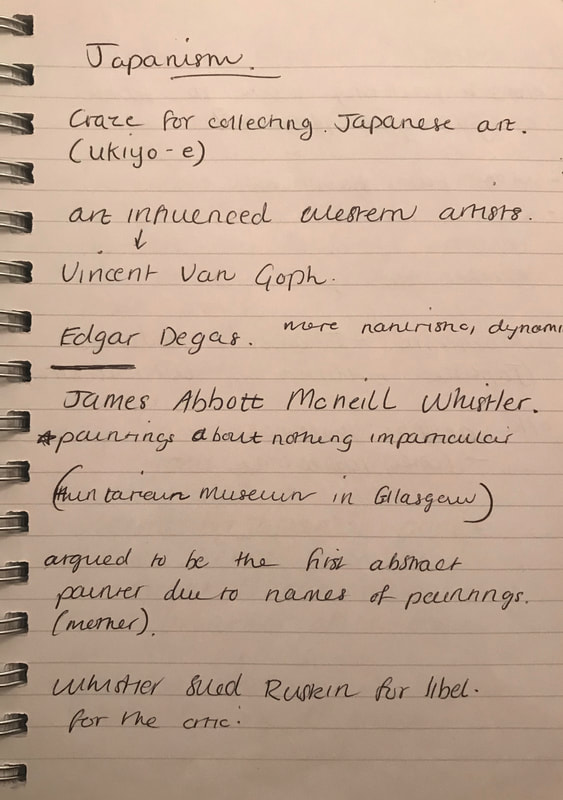 Japanism.
Craze for collecting Japanese art.
(ukiyo-e)
art influenced western artists.
↓
Vincent Van Goph.
Edgar Degas. more naturistic, dynami
James Abbott Mcneill Whistler.
*paintings about nothing imparticular
(Huntarian Museum in Gllasgow)
argued to be the first abstract
painter due to names of paintings.
(mother).
Whistler sued Ruskin for libel.
for the critic.